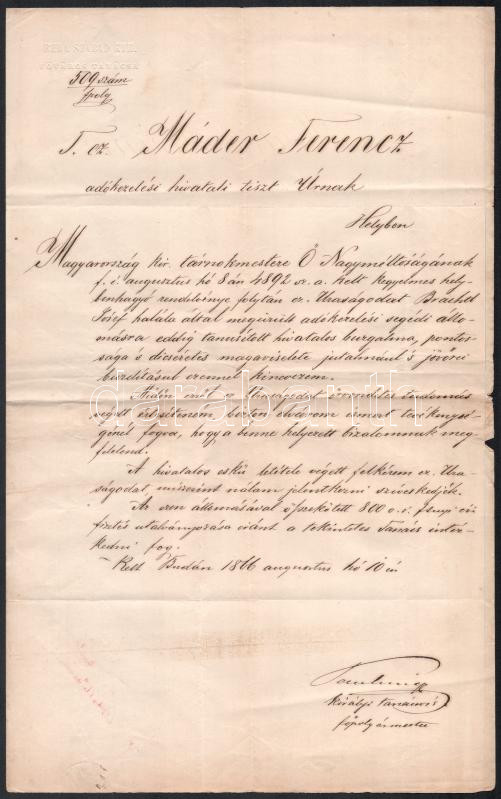 509 szám
fpolg
T. cz. Máder Ferencz
adókezelési hivatali tiszt Úrnak
Helyben
Magyarország kir. tárnokmestere Ő Nagyméltóságának
f. é. augusztus hó 8án 4892 sz. a. kelt kegyelmes hely-
benhagyó rendelménye folytán cz. Uraságodat
József halála által megürült adókezelési segédi állo-
másra eddig tanusított hivatalos buzgalma, pontos-
sága s dicséretes magaviselete jutalmául s jövőrei
buzdításul ezennel kinevezem.
Midőn ezt cz. Uraságodnak tudomás
végett értesíteném, elvárom ismert tevékenysé-
génél fogva, hogy a benne helyezett bizalomnak meg-
felelend.
A hivatalos eskü letétele végett felkérem cz. Ura-
ságodat, miszerint nálam jelentkezni szíveskedjék.
Az ezen állomásával összekötött 800 o. é. fnyi évi
fizetés utalványozása iránt a tekintetes Tanács intéz-
kedni fog.
Kelt Budán 1866 augusztus hó 10én
királyi tanácsos
főpolgármester
darabanth